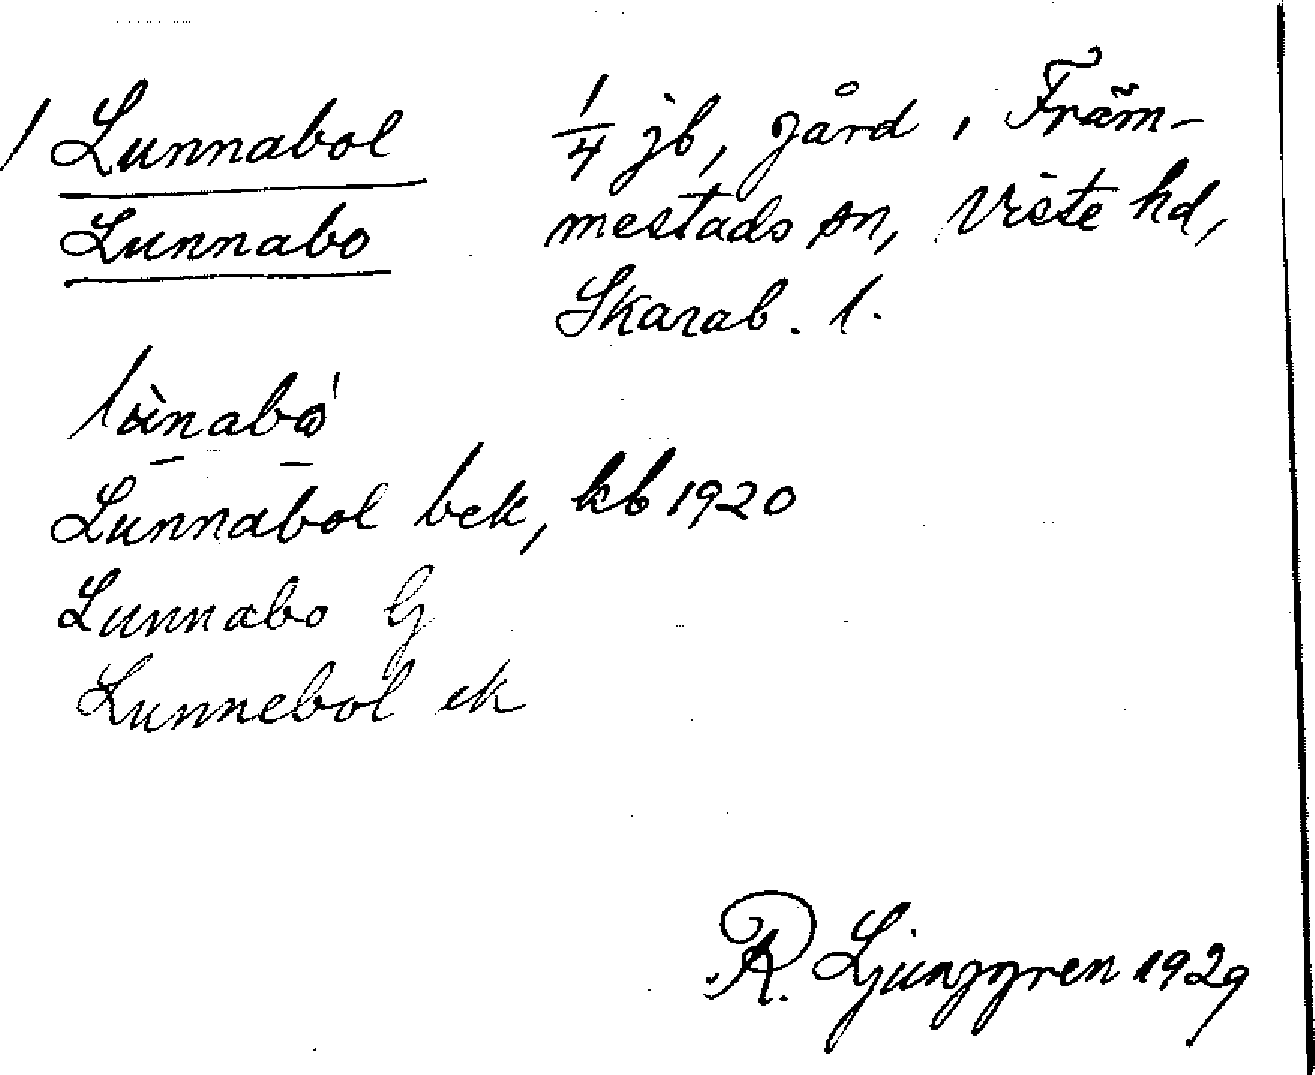 / Lunnabol
Lunnabo
1/4 jb, gård, Främ-
mestads sn, Viste hd,
Skarab. l.
Lunnabol bek, kb 1920
Lunnabo G
Lunnebol ek
R. Ljunggren 1929